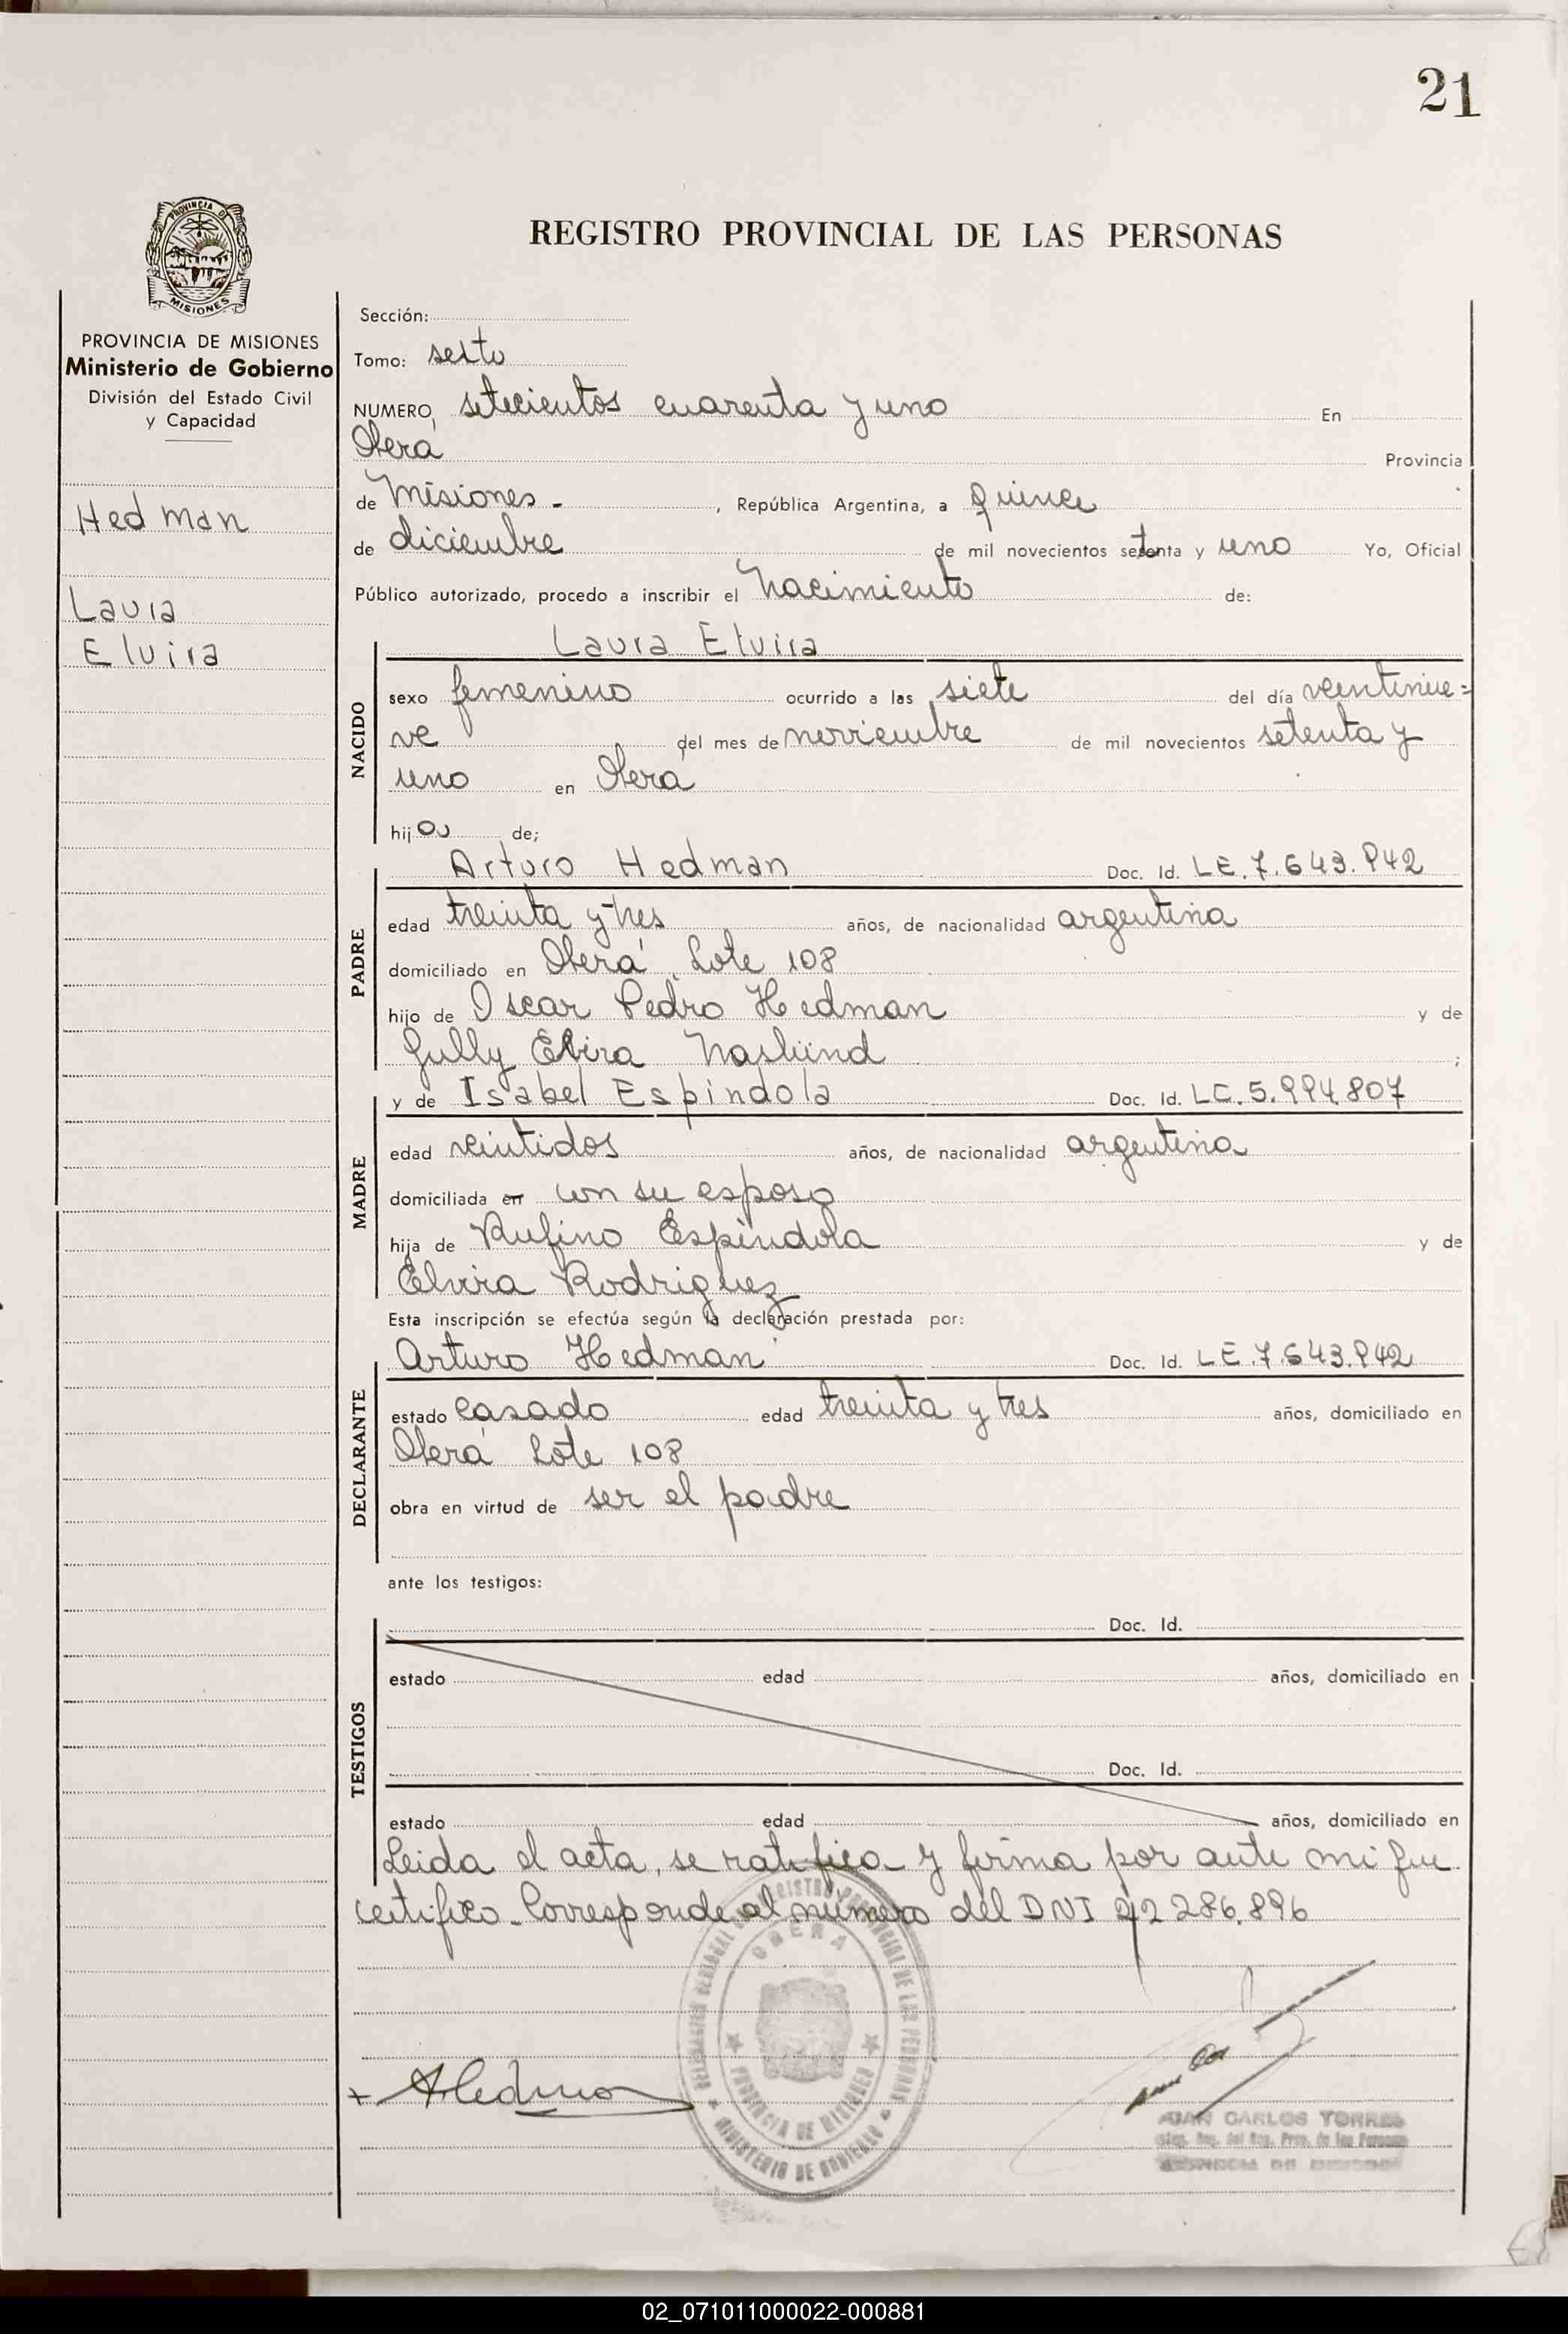 21
PROVINCIA DE
MISIONES
PROVINCIA DE MISIONES
Ministerio de Gobierno
División del Estado Civil
y Capacidad
Hedman
Laura
Elvira
REGISTRO PROVINCIAL DE LAS PERSONAS
Sección:
Tomo: sexto
NUMERO, setecientos cuarenta y uno En
Oberá Provincia
de Misiones - , República Argentina, a quince
de diciembre de mil novecientos setenta y uno Yo, Oficial
Público autorizado, procedo a inscribir el nacimiento de:
Laura Elvira
NACIDO
sexo femenino ocurrido a las siete del día veintinue=
ve del mes de noviembre de mil novecientos setenta y
uno en Oberá
hija de;
Arturo Hedman Doc. Id. LE.7.643.942
PADRE
edad treinta y tres años, de nacionalidad argentina
domiciliado en Oberá, Lote 108
hijo de Oscar Pedro Hedman y de
Elvira ;
y de Isabel Espindola Doc. Id. LC.5.994.807
MADRE
edad veintidos años, de nacionalidad argentina
domiciliada en con su esposo
hija de Rufino Espindola y de
Elvira Rodriguez
Esta inscripción se efectúa según la declaración prestada por:
Arturo Hedman Doc. Id. LE.7.643.942
DECLARANTE
estado casado edad treinta y tres años, domiciliado en
Oberá Lote 108
obra en virtud de ser el padre
ante los testigos:
Doc. Id.
TESTIGOS
estado edad años, domiciliado en
Doc. Id.
estado edad años, domiciliado en
Leida el acta, se ratifica y firma por ante mi que
certifico. Corresponde al número del DNI 22 286.896
OBERA
PROVINCIA DE MISIONES
MINISTERIO DE GOBIERNO
AHedman
JUAN CARLOS TORRES
02_071011000022-000881